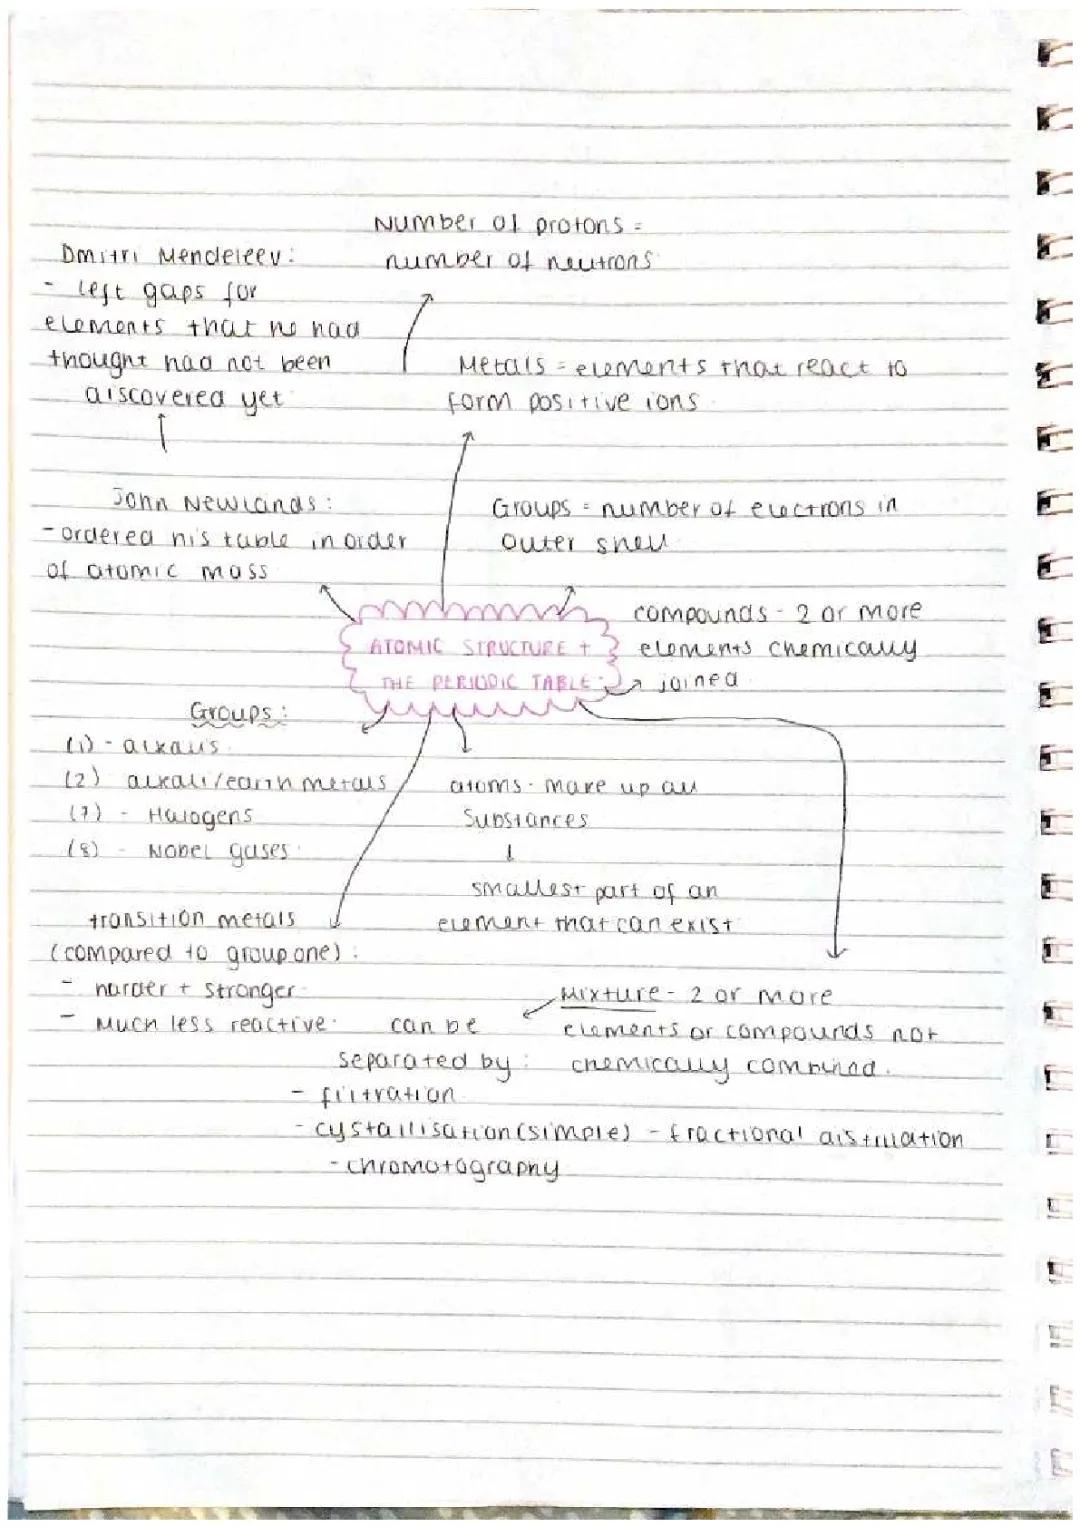 Number of protons =
number of neutrons
Dmitri Mendeleev:
- left gaps for
elements that he had
thought had not been
discovered yet
Metals = elements that react to
form positive ions
John Newlands:
- ordered his table in order
of atomic mass
Groups = number of electrons in
outer shell
ATOMIC STRUCTURE +
THE PERIODIC TABLE:
compounds - 2 or more
elements chemically
joined
Groups:
(1) - alkali's
(2) alkali/earth metals
(7) - Halogens
(8) - Nobel gases
atoms - make up all
substances
smallest part of an
element that can exist
transition metals
(compared to group one):
- harder + stronger
- Much less reactive
Mixture - 2 or more
elements or compounds not
chemically combined.
can be
separated by:
- filtration
- cystallisation (simple) - fractional distillation
- chromotography